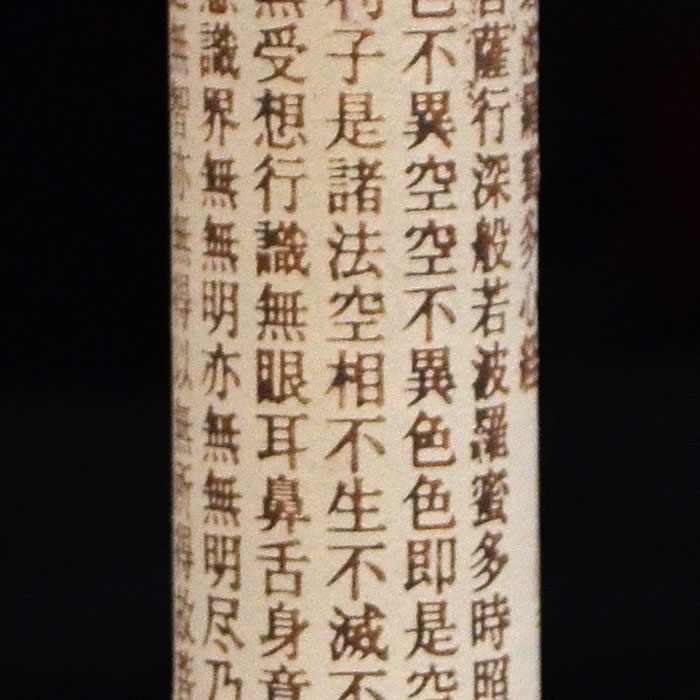 羅蜜多心経
薩行深般若波羅蜜多時照
色不異空空不異色色即是空
利子是諸法空相不生不滅不
無受想行識無眼耳鼻舌身意
意識界無無明亦無無明尽乃
無智亦無得以無所得故菩